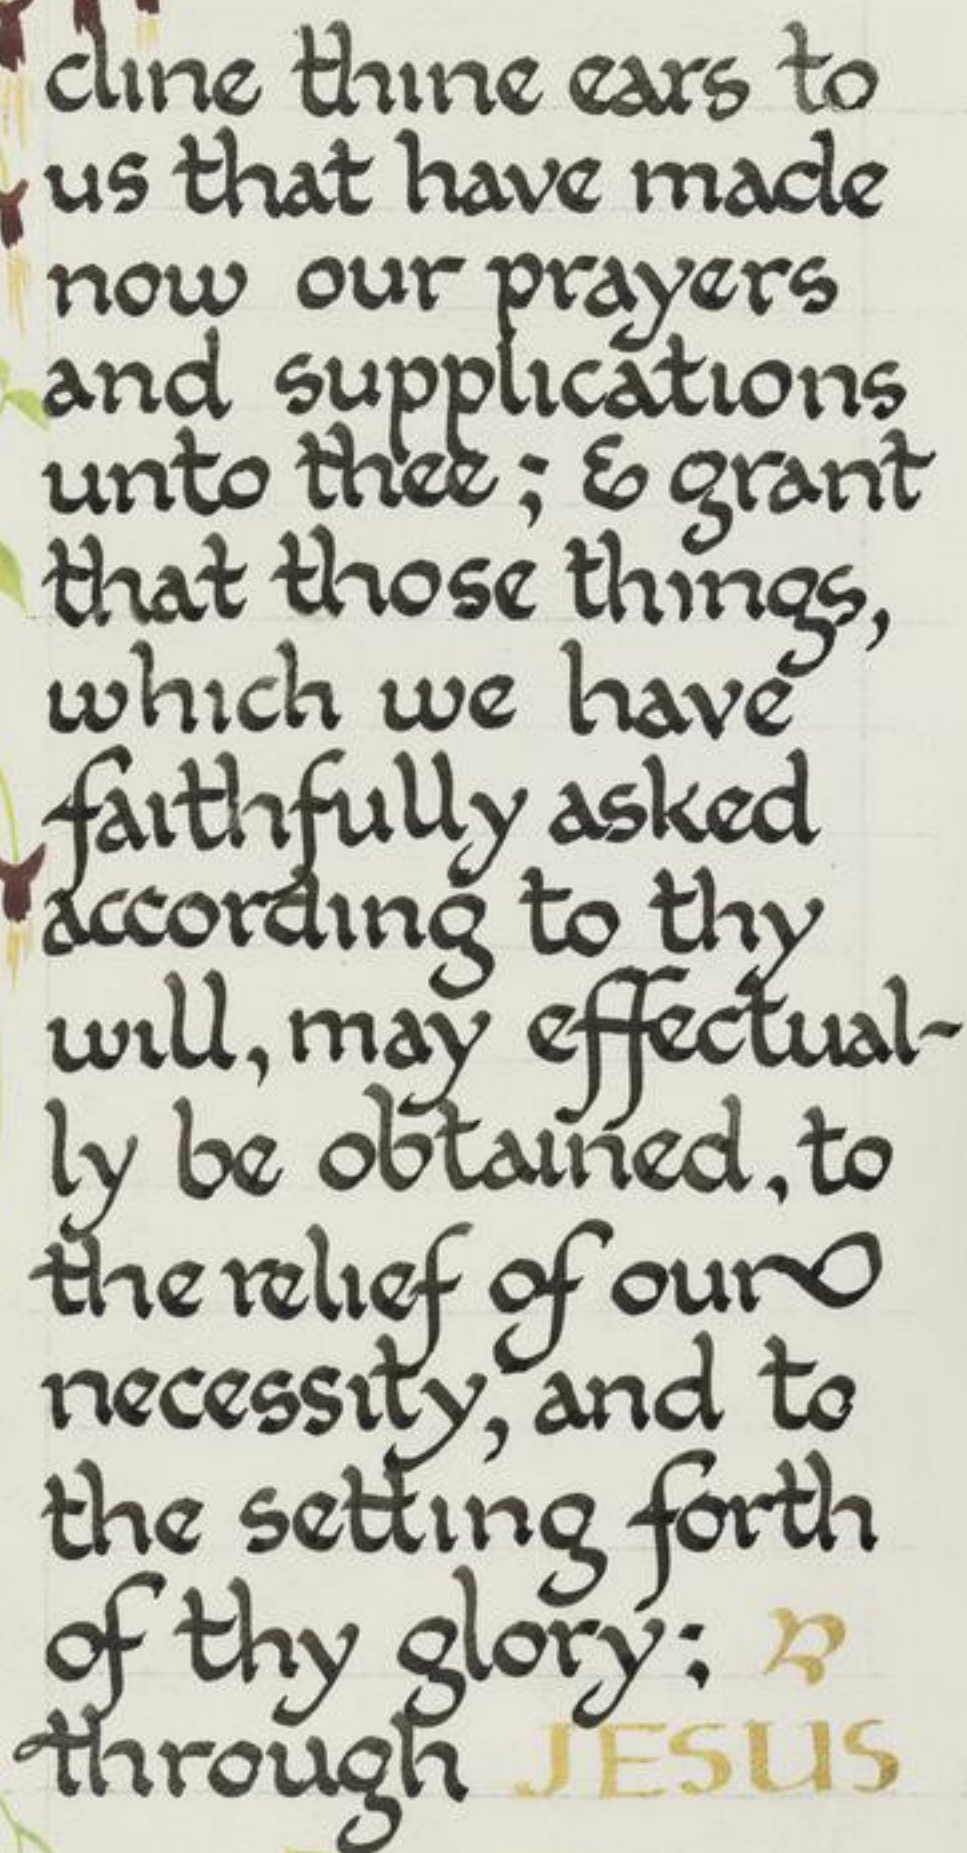 cline thine ears to
us that have made
now our prayers
and supplications
unto thee; & grant
that those things,
which we have
faithfully asked
according to thy
will, may effectual-
ly be obtained, to
the relief of our
necessity, and to
the setting forth
of thy glory;
through JESUS